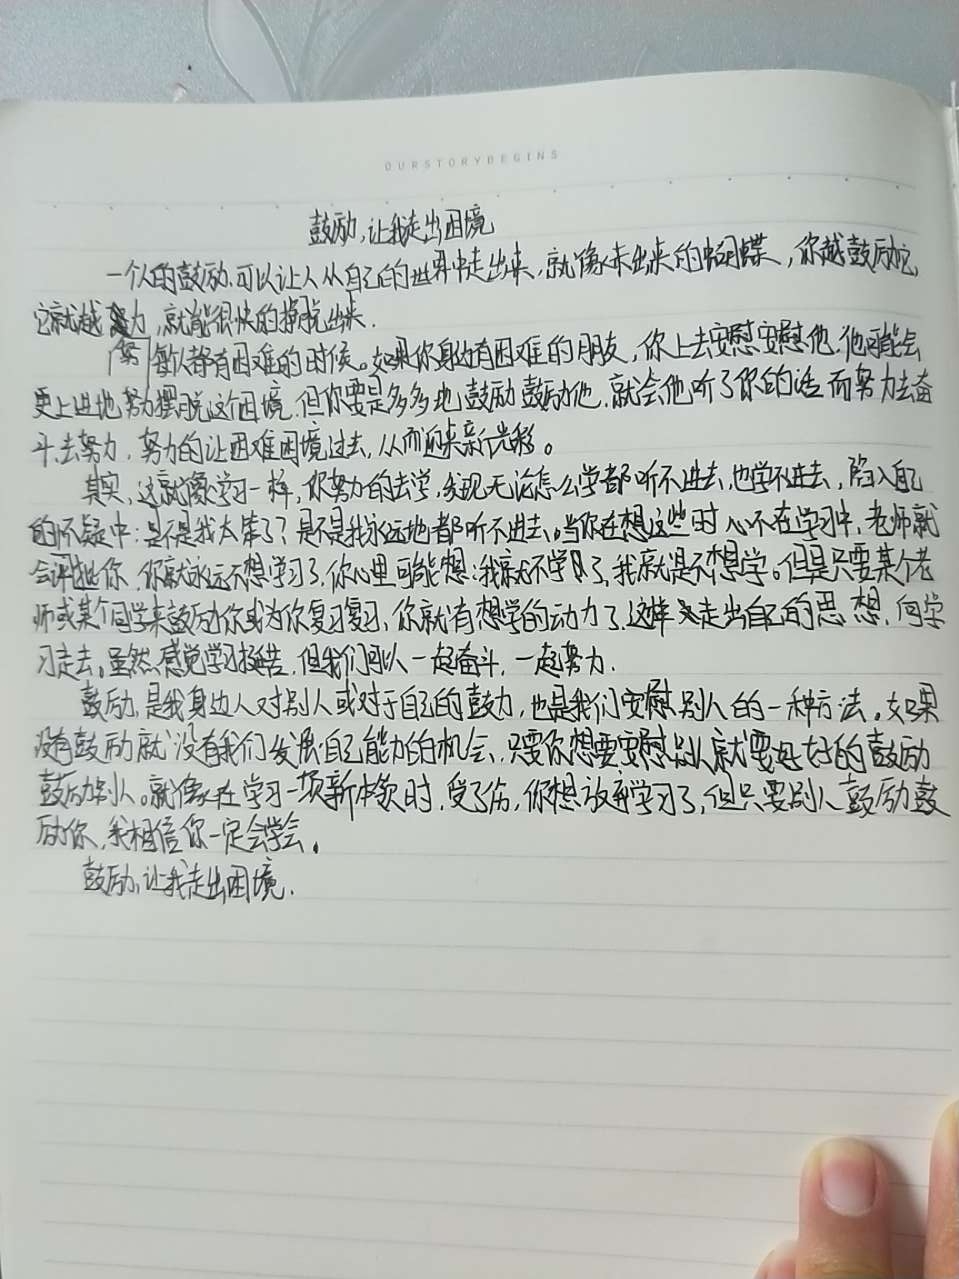 OURSTORYBEGINS
鼓励,让我走出困境
一个人的鼓励,可以让人从自己的世界中走出来,就像未出来的蝴蝶,你越鼓励它
它就越努力,就能很快的挣脱出来.
每人都有困难的时候。如果你身边有困难的朋友,你上去安慰安慰他.他可能会
更上进地努力摆脱这个困境.但你要是多多地鼓励鼓励他,就会他听了你的话而努力去奋
斗.去努力,努力的让困难困境过去,从而迎来新光移。
其实,这就像学习一样,你努力的去学,发现无论怎么学都听不进去,也学不进去,陷入自己
的怀疑中:是不是我太笨了?是不是我永远地都听不进去。当你在想这些时心不在学习中,老师就
会评批你,你就永远不想学习了,你心里可能想:我就不学习了,我就是不想学。但是只要某个老
师或某个同学来鼓励你或为你复习复习,你就有想学的动力了.这样走出自己的思想,向学
习走去。虽然感觉学习挺苦,但我们可以一起奋斗,一起努力.
鼓励,是我身边人对别人或对于自己的鼓力,也是我们安慰别人的一种方法。如果
没有鼓励就没有我们发展自己能力的机会,只要你想要安慰别人就要好好的鼓励
鼓励别人。就像在学习一项新时,受了伤,你想放弃学习了,但只要别人鼓励鼓
励你,我相信你一定会学会。
鼓励,让我走出困境.